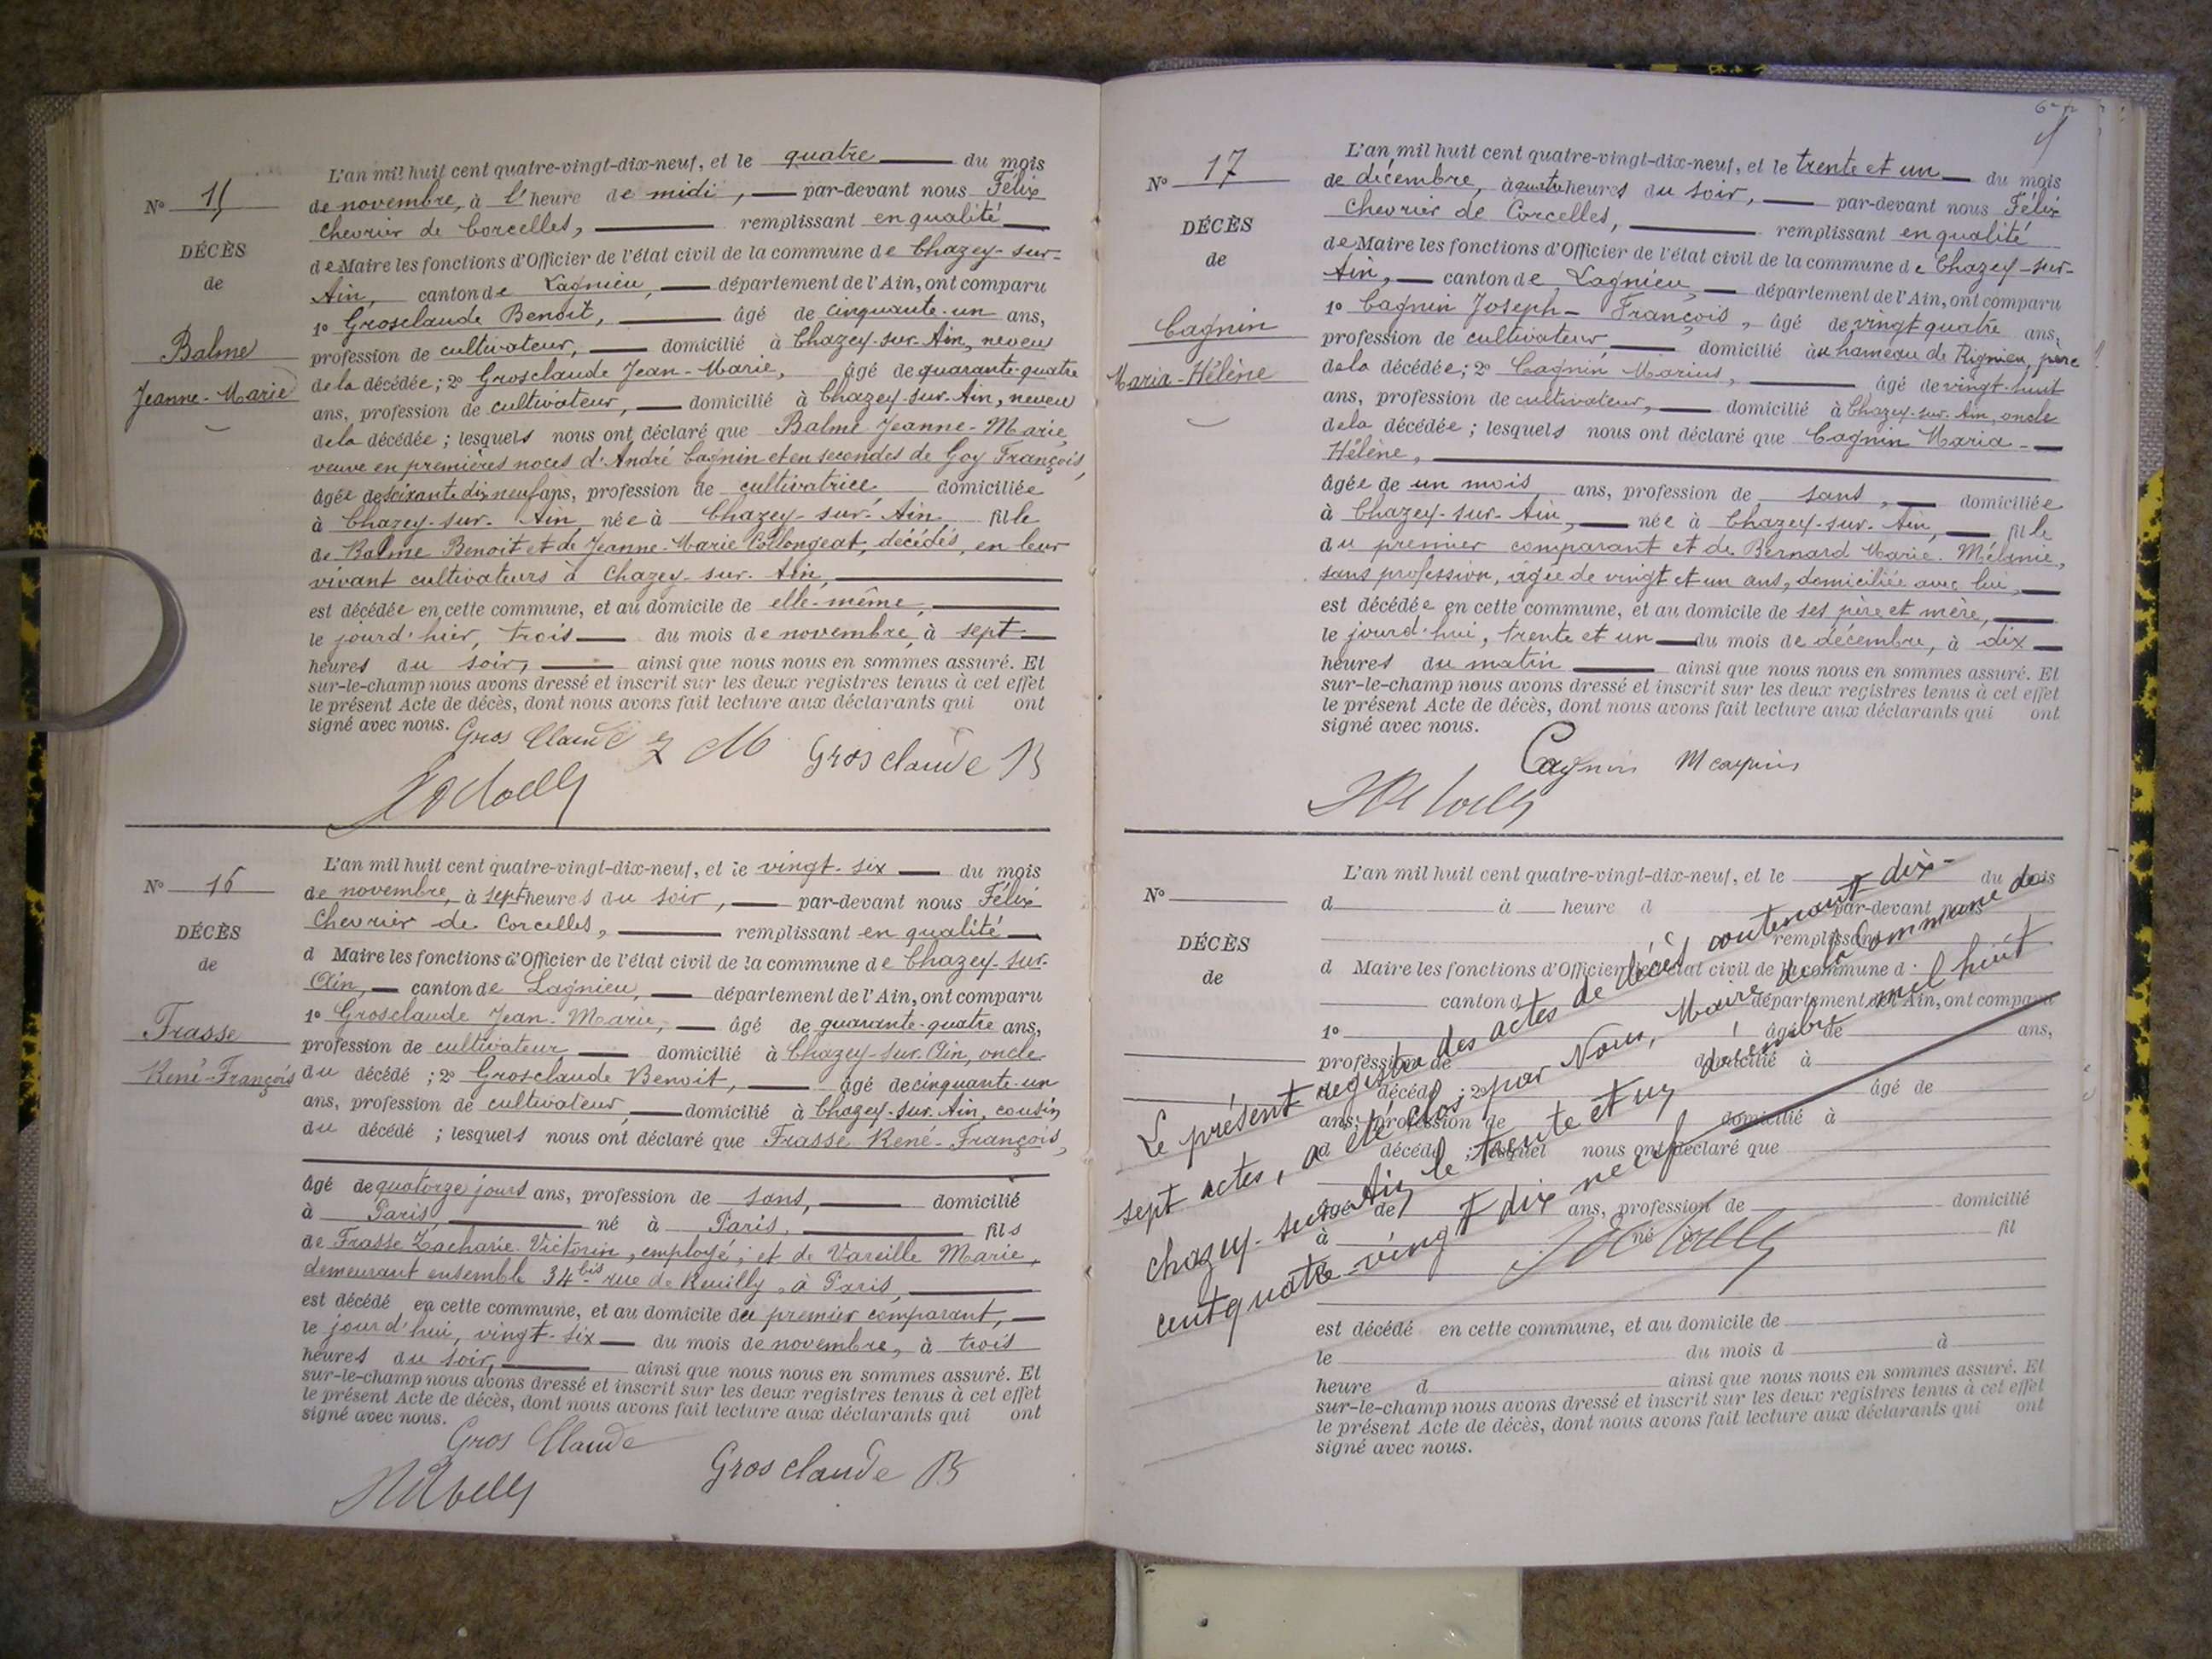 N° 15
DÉCÈS
de
Balme
Jeanne-Marie
L'an mil huit cent quatre-vingt-dix-neuf, et le quatre du mois
de novembre, à l'heure de midi, par-devant nous Félix
Chevrier de Corcelles, remplissant en qualité
de Maire les fonctions d'Officier de l'état civil de la commune de Chazey-sur-
Ain, canton de Lagnieu, département de l'Ain, ont comparu
1° Grosclaude Benoit, âgé de cinquante-un ans,
profession de cultivateur, domicilié à Chazey-sur-Ain, neveu
de la décédée; 2° Grosclaude Jean-Marie, âgé de quarante-quatre
ans, profession de cultivateur, domicilié à Chazey-sur-Ain, neveu
de la décédée; lesquels nous ont déclaré que Balme Jeanne-Marie,
veuve en premières noces d'André Cagnin et en secondes de Goy François,
âgée de soixante dix neuf ans, profession de cultivatrice domiciliée
à Chazey-sur-Ain née à Chazey-sur-Ain fille
de Balme Benoit et de Jeanne-Marie Collengeat, décédés, en leur
vivant cultivateurs à Chazey-sur-Ain,
est décédée en cette commune, et au domicile de elle-même,
le jourd'hier, trois du mois de novembre, à sept
heures du soir, ainsi que nous nous en sommes assuré. Et
sur-le-champ nous avons dressé et inscrit sur les deux registres tenus à cet effet
le présent Acte de décès, dont nous avons fait lecture aux déclarants qui ont
signé avec nous. Gros Claude M Grosclaude B
N° 16
DÉCÈS
de
Frasse
René-François
L'an mil huit cent quatre-vingt-dix-neuf, et le vingt-six du mois
de novembre, à sept heures du soir, par-devant nous Félix
Chevrier de Corcelles, remplissant en qualité
d Maire les fonctions d'Officier de l'état civil de la commune de Chazey-sur-
Ain, canton de Lagnieu, département de l'Ain, ont comparu
1° Grosclaude Jean-Marie, âgé de quarante-quatre ans,
profession de cultivateur domicilié à Chazey-sur-Ain, oncle
du décédé; 2° Grosclaude Benoit, âgé de cinquante-un
ans, profession de cultivateur, domicilié à Chazey-sur-Ain, cousin
du décédé; lesquels nous ont déclaré que Frasse René-François,
âgé de quatorze jours ans, profession de sans, domicilié
à Paris, né à Paris, fils
de Frasse Zacharie Victorin, employé, et de Vareille Marie,
demeurant ensemble 34 bis rue de Reuilly, à Paris,
est décédé en cette commune, et au domicile du premier comparant,
le jourd'hui, vingt-six du mois de novembre, à trois
heures du soir, ainsi que nous nous en sommes assuré. Et
sur-le-champ nous avons dressé et inscrit sur les deux registres tenus à cet effet
le présent Acte de décès, dont nous avons fait lecture aux déclarants qui ont
signé avec nous.
Gros Claude Grosclaude B
N° 17
DÉCÈS
de
Cagnin
Maria-Hélène
L'an mil huit cent quatre-vingt-dix-neuf, et le trente et un du mois
de décembre, à quatre heures du soir, par-devant nous Félix
Chevrier de Corcelles, remplissant en qualité
de Maire les fonctions d'Officier de l'état civil de la commune de Chazey-sur-
Ain, canton de Lagnieu, département de l'Ain, ont comparu
1° Cagnin Joseph-François, âgé de vingt quatre ans,
profession de cultivateur, domicilié au hameau de Rignieu, père
de la décédée; 2° Cagnin Marius, âgé de vingt-huit
ans, profession de cultivateur, domicilié à Chazey-sur-Ain, oncle
de la décédée; lesquels nous ont déclaré que Cagnin Maria-
Hélène,
âgée de un mois ans, profession de sans, domiciliée
à Chazey-sur-Ain, née à Chazey-sur-Ain, fille
du premier comparant et de Bernard Marie-Mélanie,
sans profession, âgée de vingt et un ans, domiciliée avec lui,
est décédée en cette commune, et au domicile de ses père et mère,
le jourd'hui, trente et un du mois de décembre, à dix
heures du matin ainsi que nous nous en sommes assuré. Et
sur-le-champ nous avons dressé et inscrit sur les deux registres tenus à cet effet
le présent Acte de décès, dont nous avons fait lecture aux déclarants qui ont
signé avec nous.
Cagnin M cagnin
N°
DÉCÈS
de
L'an mil huit cent quatre-vingt-dix-neuf, et le du mois
d à heure d par-devant nous
remplissant
d Maire les fonctions d'Officier de l'état civil de la commune d
canton d département de l'Ain, ont comparu
1° âgé de ans,
profession de domicilié à
décédé ; 2° âgé de
ans, profession de domicilié à
d décédé ; lesquel nous ont déclaré que
âgé de ans, profession de domicilié
à né à fil
est décédé en cette commune, et au domicile de
le du mois d à
heure d ainsi que nous nous en sommes assuré. Et
sur-le-champ nous avons dressé et inscrit sur les deux registres tenus à cet effet
le présent Acte de décès, dont nous avons fait lecture aux déclarants qui ont
signé avec nous.
Le présent registre des actes de décès contenant dix-
sept actes, a été clos par Nous, Maire de la commune de
chazey-sur-Ain le trente et un décembre mil huit
cent quatre-vingt dix neuf